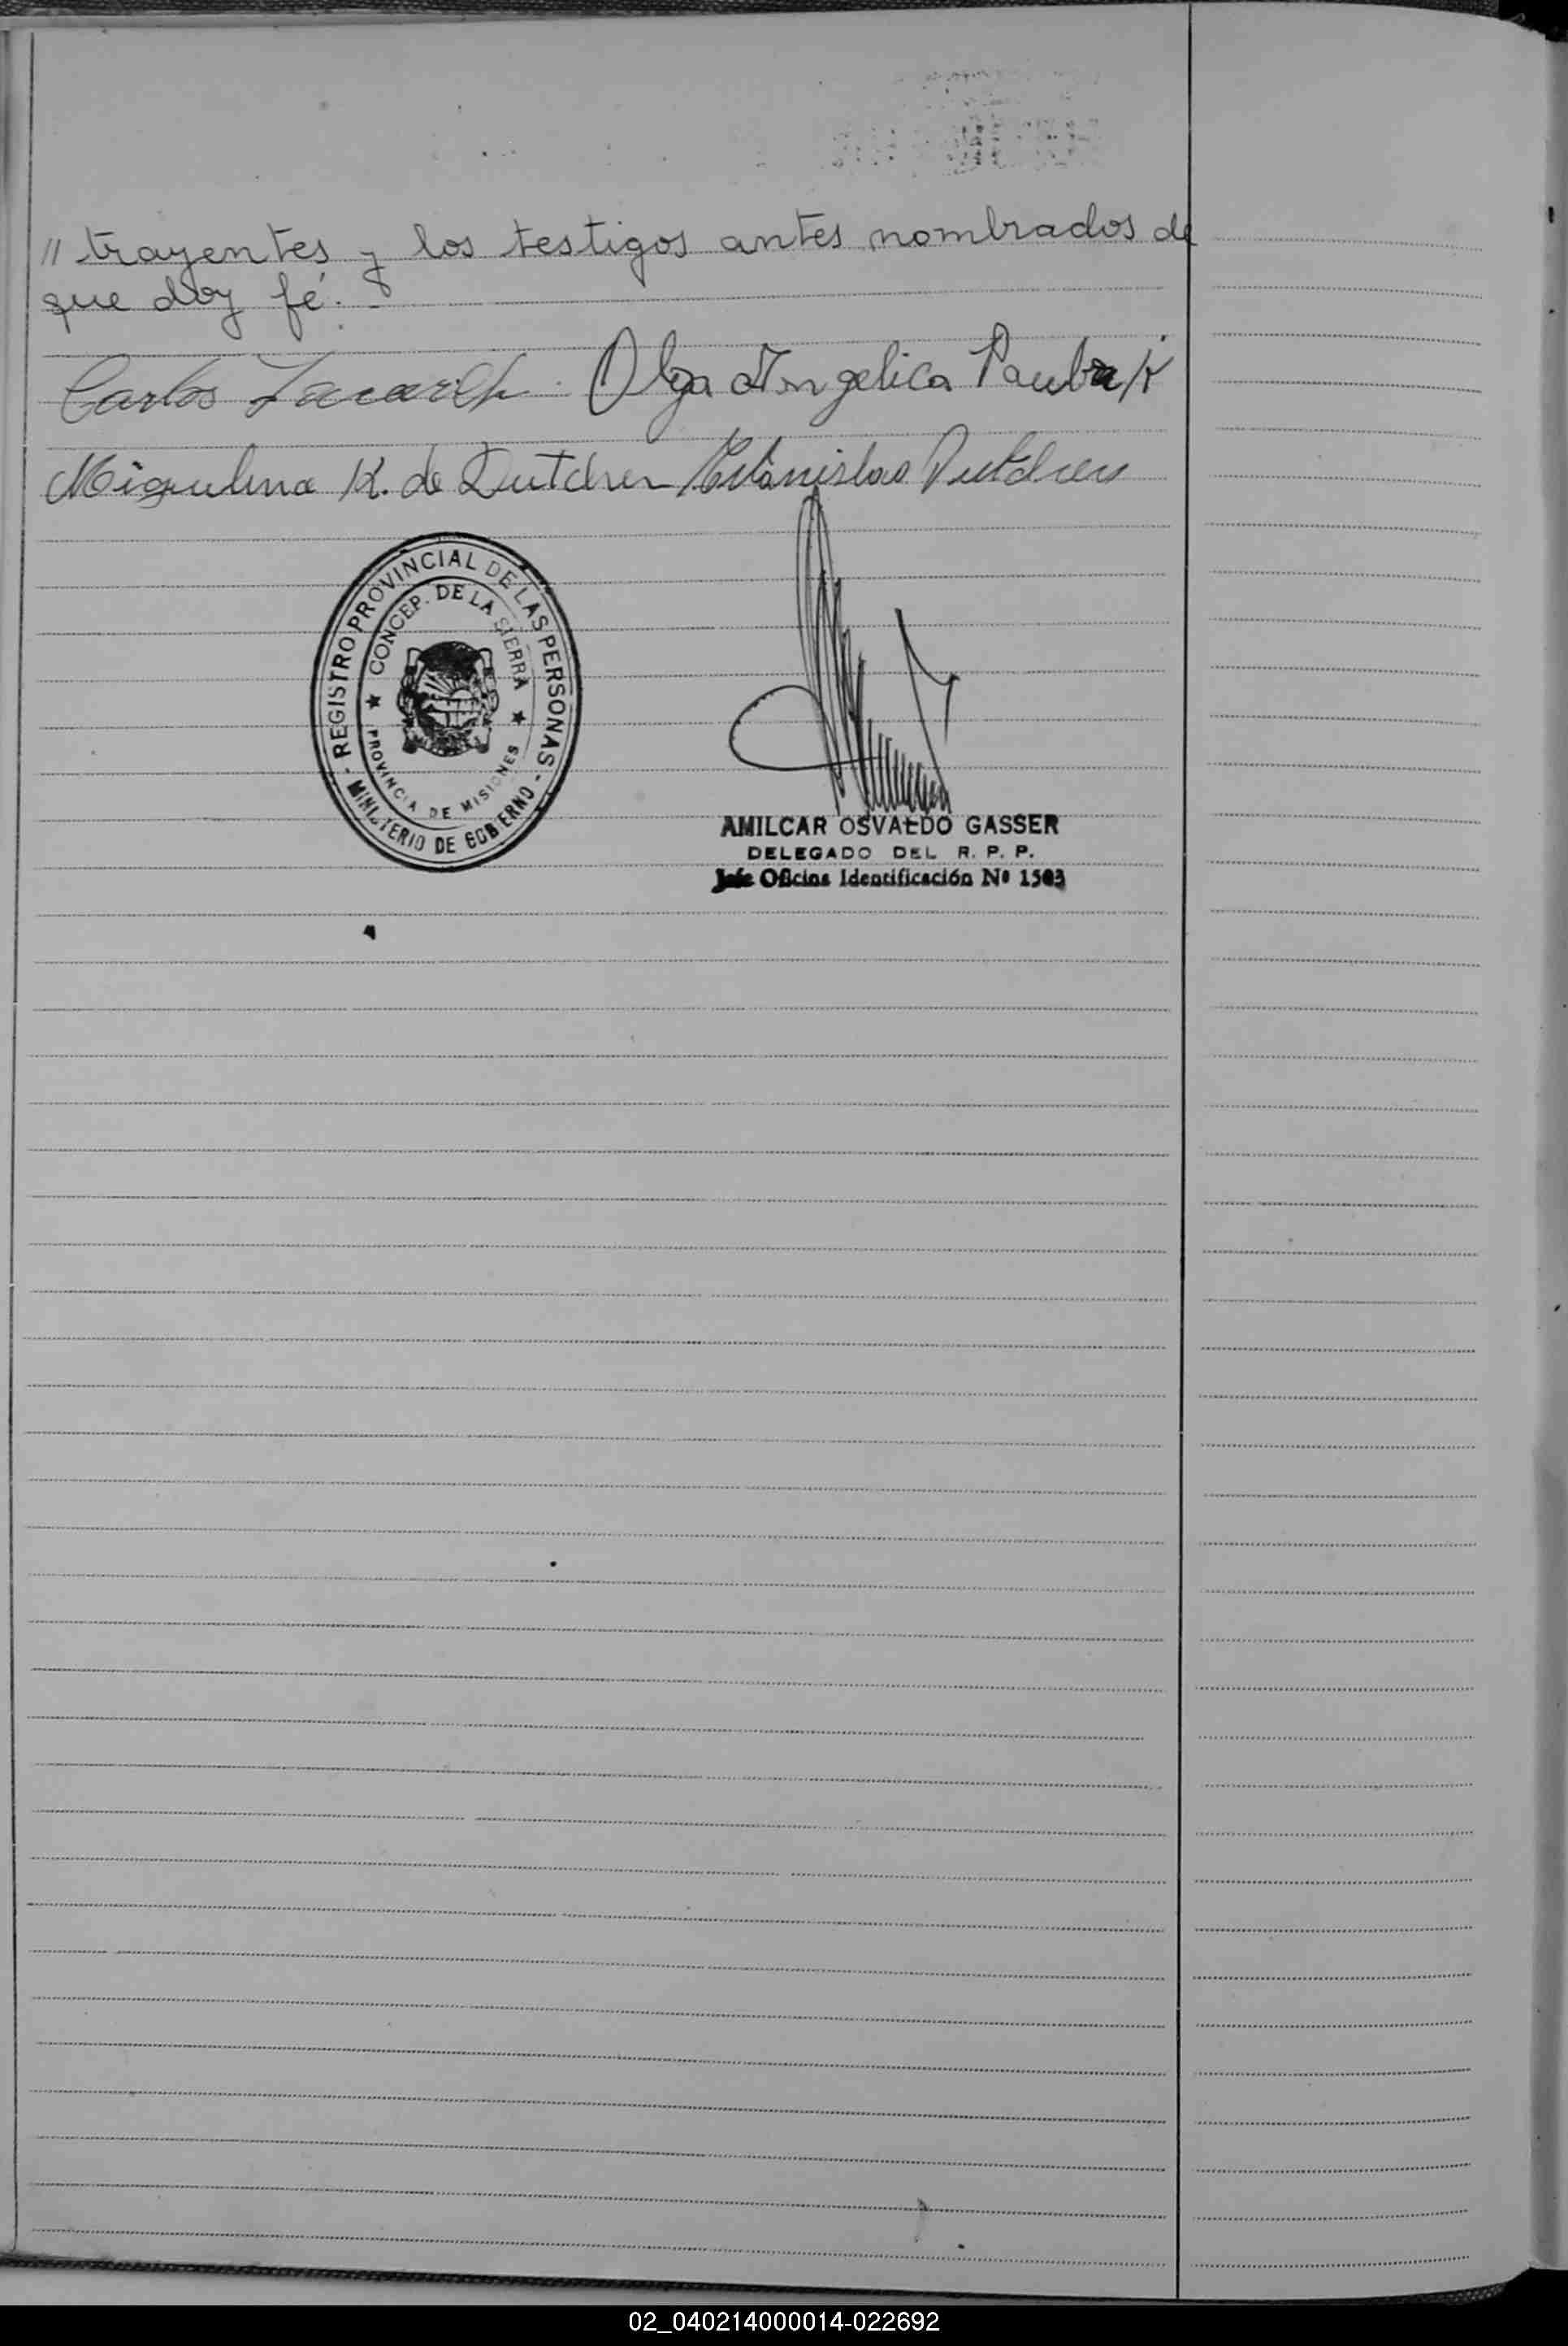 // trayentes y los testigos antes nombrados de
que doy fé. -
Carlos Olga Angelica Paubak
Miguelina K. de Dutchen Estanislao Dutchen
- REGISTRO PROVINCIAL DE LAS PERSONAS -
MINISTERIO DE GOBIERNO
★ CONCEP. DE LA SIERRA ★
PROVINCIA DE MISIONES
AMILCAR OSVALDO GASSER
DELEGADO DEL R. P. P.
Jefe Oficina Identificación Nº 1503
02_040214000014-022692